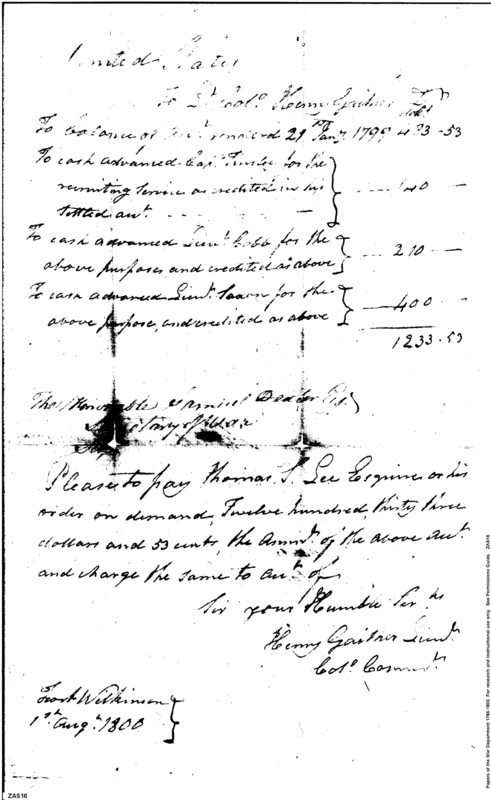 United States
To Lt. Colo. Henry Gaither Dr
dolls.
To balance of acct. rendered 29 Jany. 1799 483-53
To cash advanced Capt. Tinsley for the
recruiting service as credited in his
settled acct. - - - - 140 -
To cash advanced Lieut. Webb for the
above purposes and credited as above 210 -
To cash advanced Lieut. for the
above purpose, and credited as above 400 -
1233.53
The Honorable Samuel Dexter Esq
Secretary of War
Sir
Please to pay Thomas S. Lee Esquire or his
order on demand, Twelve hundred, thirty three
dollars and 53 cents, the Amnt. of the above acct.
and charge the same to act. of
Sir your Humble Servt.
Henry Gaither Lieut.
Colo. Commdt.
Fort Wilkinson
1st. Augt. 1800
ZAS16
Papers of the War Department 1784-1800. For research and instructional use only. See Permissions Guide. ZAS16